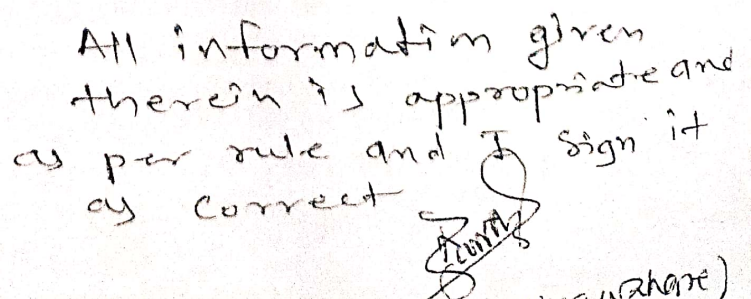 All information given
therein is appropriate and
as per rule and I sign it
as correct